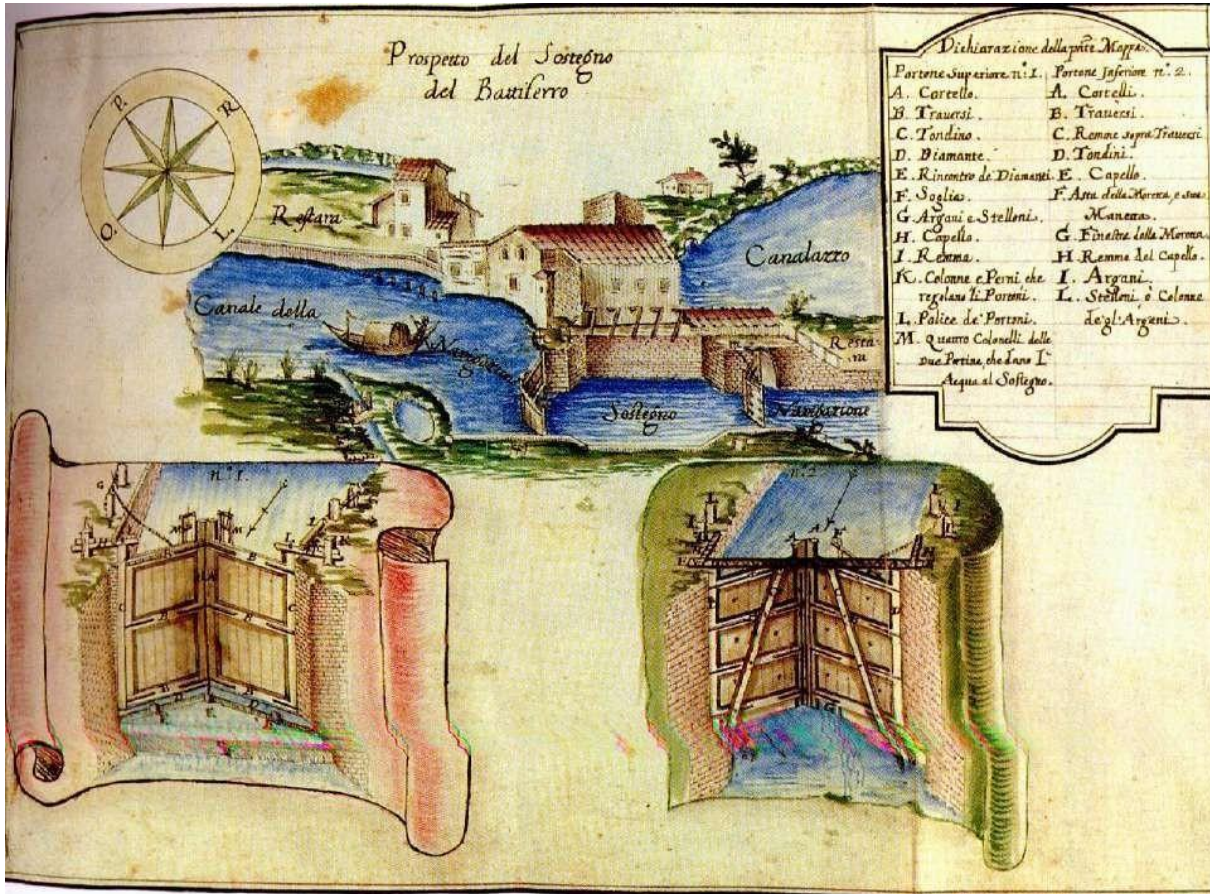 Prospetto del Sostegno
del Battiferro
P.
R
O.
L.
Restara
Canale della
Navigatione
Canalazzo
Resta
ra
Sostegno
Navigatione
Dichiarazione della pnte Mappa.
Portone Superiore n.º 1.
A. Cortello.
B. Traversi.
C. Tondino.
D. Diamante.
E. Rincontro de Diamanti.
F. Soglia.
G. Argani e Stelloni.
H. Capello.
I. Remma.
K. Colonne e Perni che
regolano li Portoni.
L. Police de' Portoni.
M. Quattro Colonelli delle
Due Portine, che dano l'
Acqua al Sostegno.
Portone Inferiore n.º 2.
A. Cortelli.
B. Traversi.
C. Remme sopra Traversi
D. Tondini.
E. Capello.
F. Asta della Morona, e sua
Manezza.
G. Finestra della Morona.
H. Remme del Capello.
I. Argani.
L. Stelloni ò Colonne
de gl' Argani.
n.º 1.
G
M
M
B
n.º 2
A
H
G